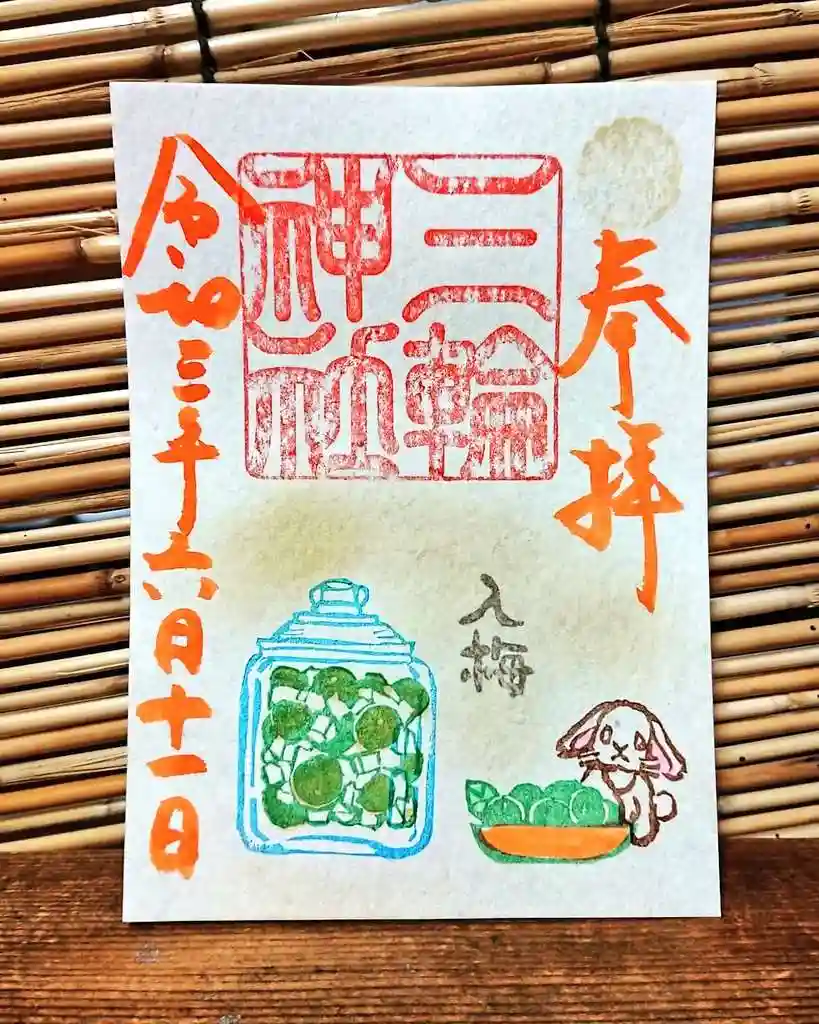 奉拝
三輪
神社
入梅
令和三年六月十一日